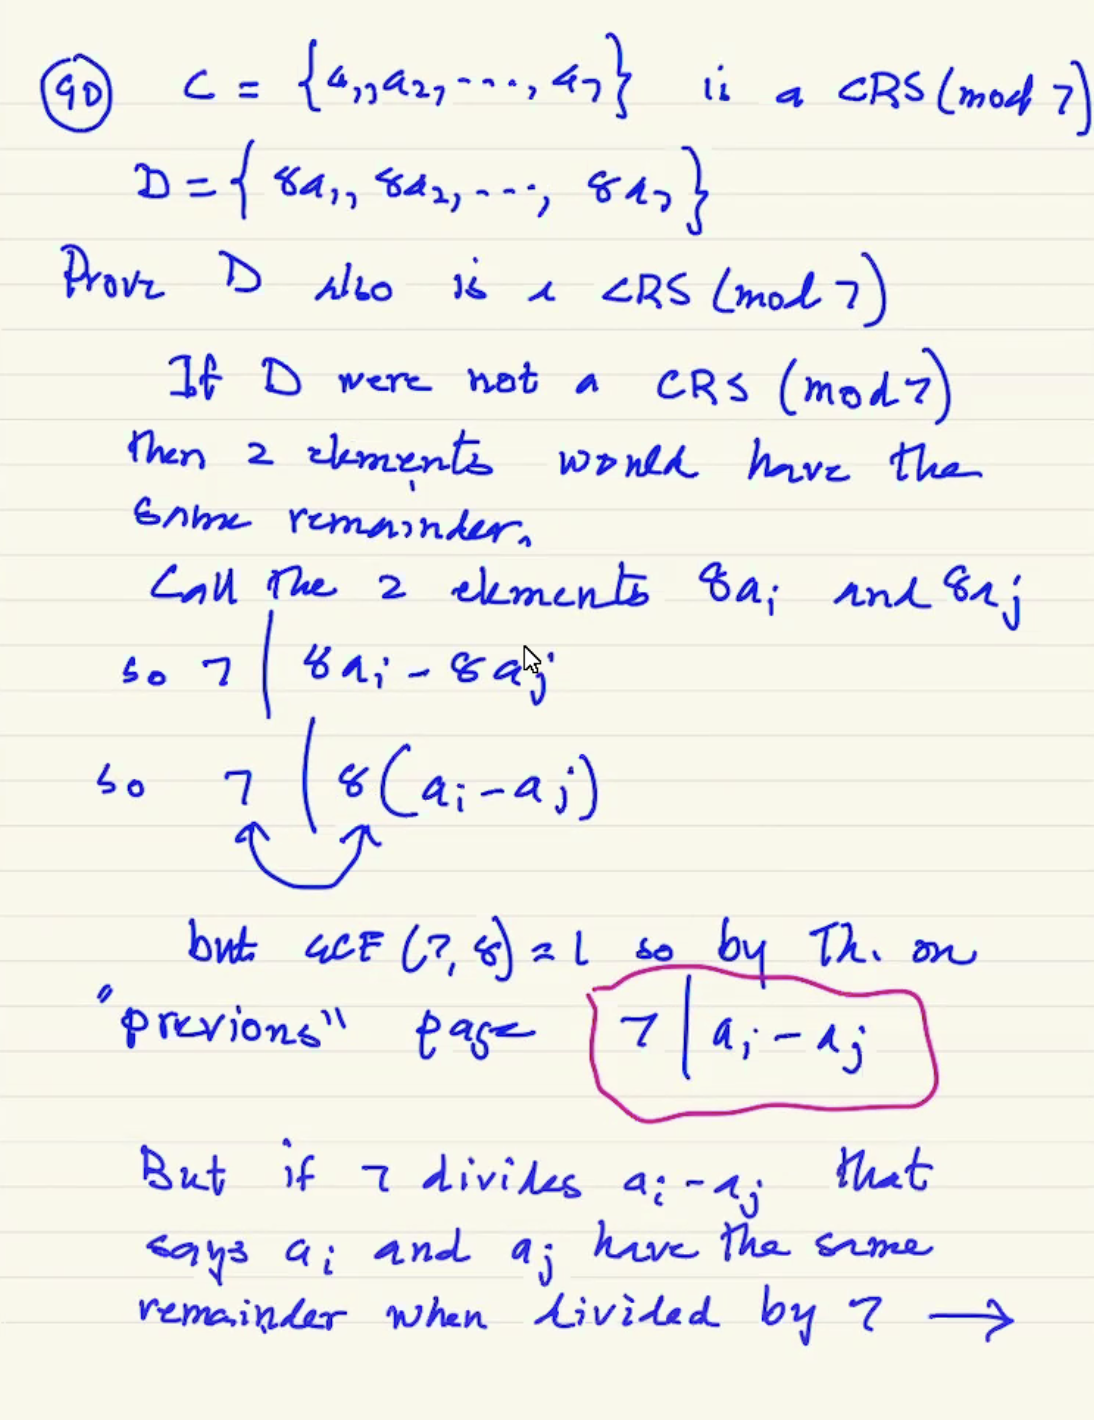 90 C = {a₁, a₂, ..., a₇} is a CRS (mod 7)
D = { 8a₁, 8a₂, ..., 8a₇}
Prove D also is a CRS (mod 7)
If D were not a CRS (mod 7)
then 2 elements would have the
same remainder.
Call the 2 elements 8aᵢ and 8aⱼ
so 7 | 8aᵢ - 8aⱼ
so 7 | 8(aᵢ - aⱼ)
but GCF (7, 8) = 1 so by Th. on
"previous" page 7 | aᵢ - aⱼ
But if 7 divides aᵢ - aⱼ that
says aᵢ and aⱼ have the same
remainder when divided by 7 →